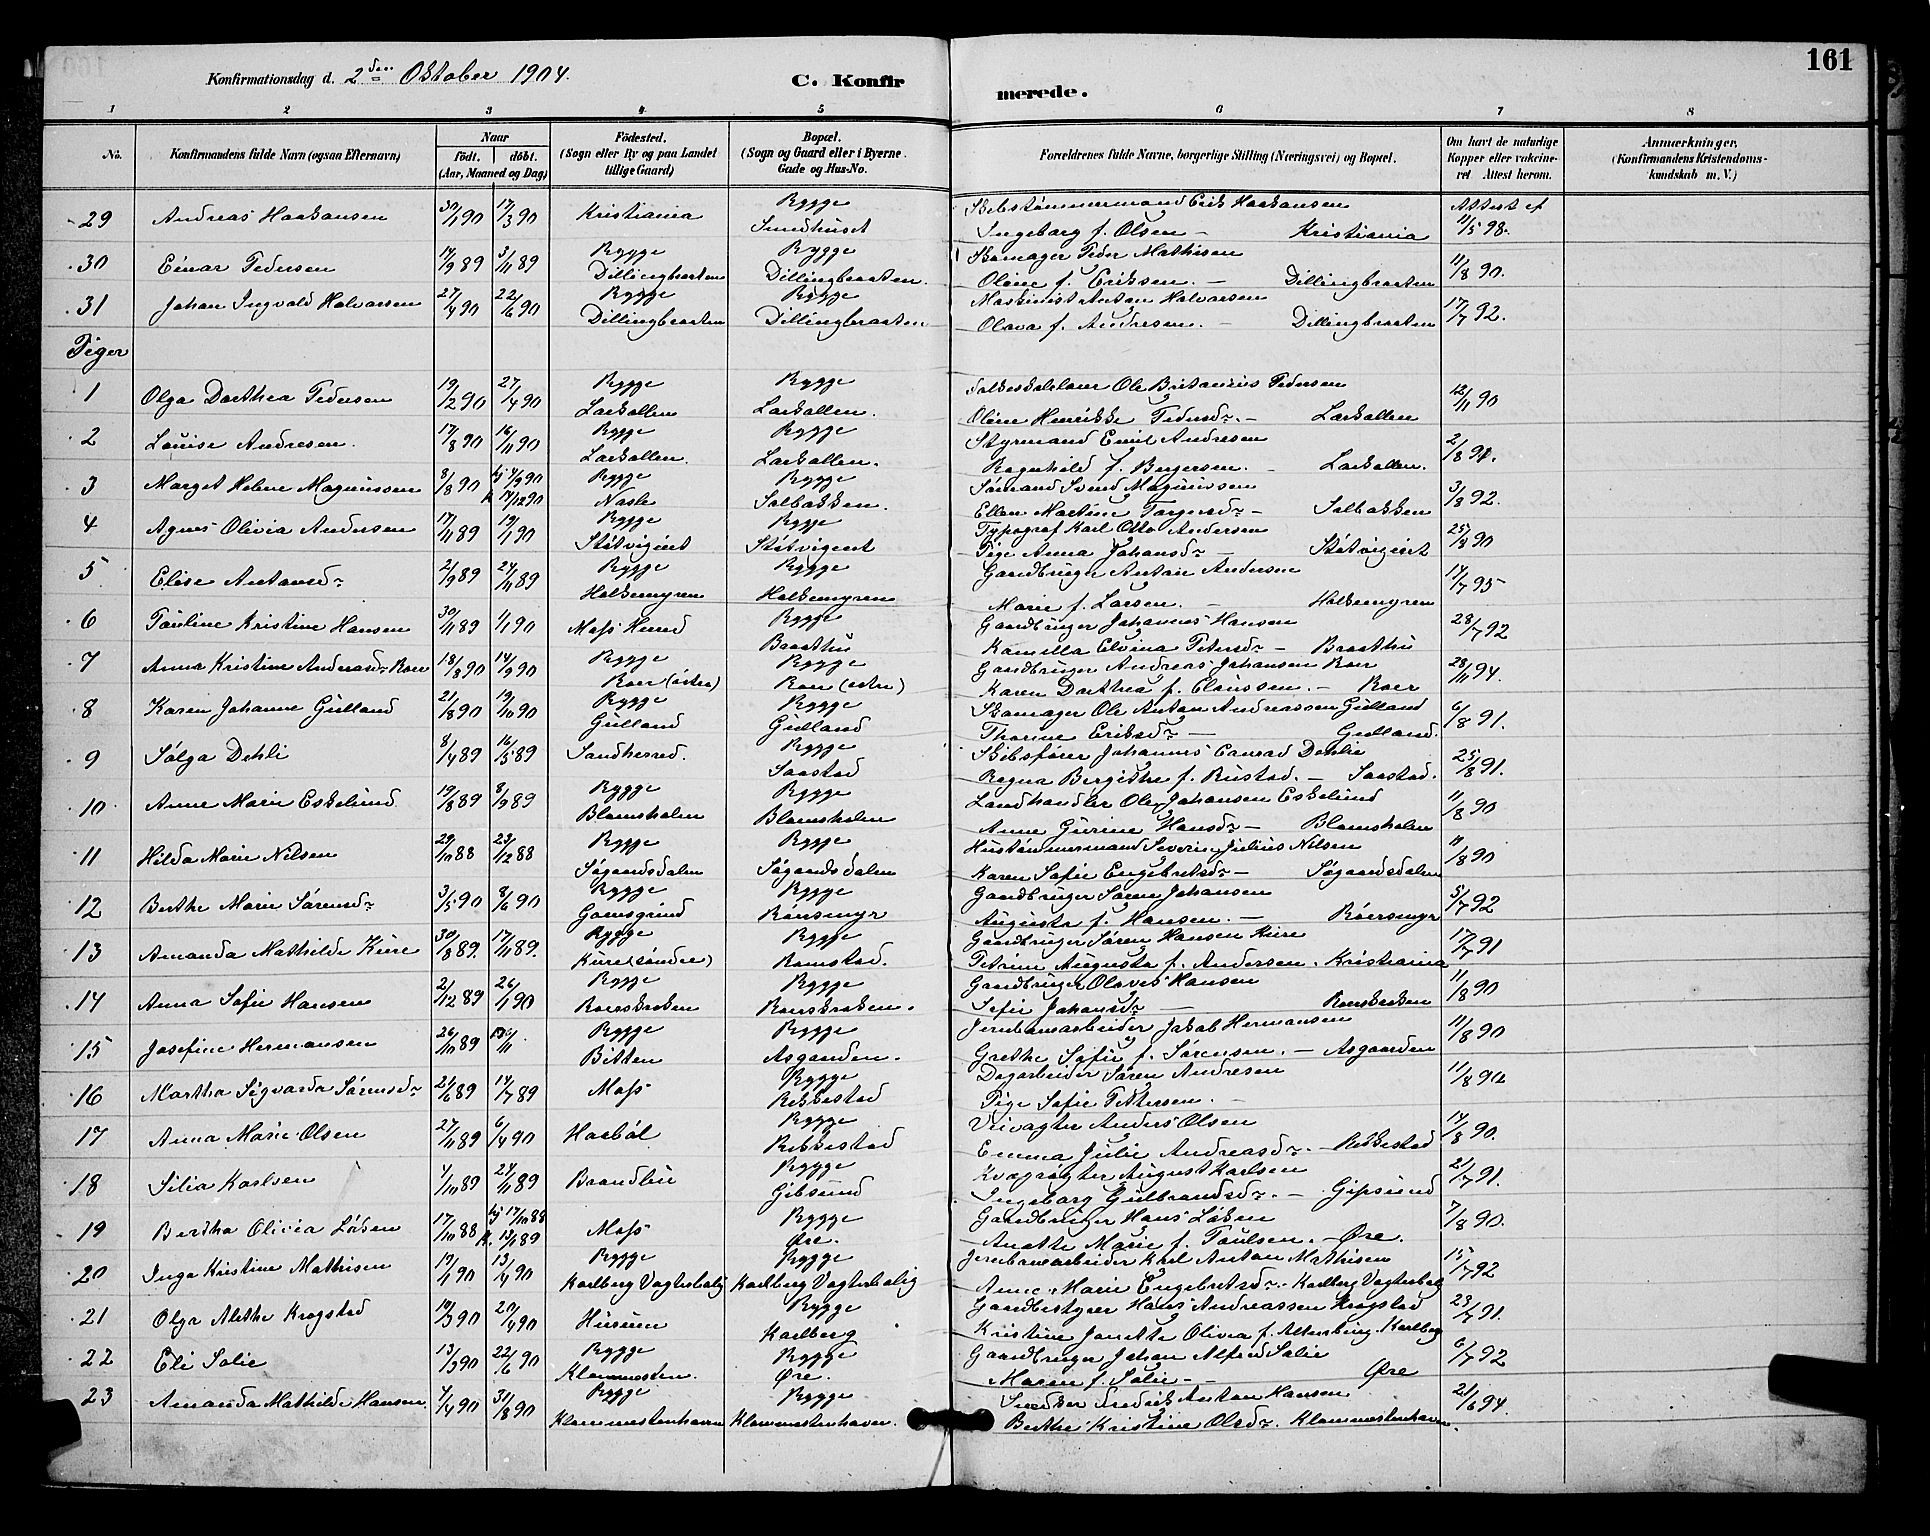 161
Konfirmationsdag d. 2den Oktober 1904. C. Konfir merede.
1 2 3 4 5 6 7 8
No. Konfirmandens fulde Navn (ogsaa Efternavn) Naar født. døbt. (Aar, Maaned og Dag) Fødested. (Sogn eller By og paa Landet tillige Gaard) Bopæl. (Sogn og Gaard eller i Byerne Gade og Hus-No. Forældrenes fulde Navne, borgerlige Stilling (Næringsvei) og Bopæl. Om havt de naturlige Kopper eller vakcineret Attest herom. Anmærkninger. (Konfirmandens Kristendomskundskab m. V.)
29 Andreas Haakansen 30/1 90 17/3 90 Kristiania Rygge Skibstømmermand Erik Haakansen Attest af
Sundhuset Ingeborg f. Olsen - Kristiania 11/5 98.
30 Einar Pedersen 17/9 89 3/11 89 Rygge Rygge Skomager Peder Mathisen 11/8 90.
Dillingbraaten Dillingbraaten. Oline f. Eriksen. - Dillingbraaten
31 Johan Ingvald Halvorsen 27/4 90 22/6 90 Rygge Rygge Maskinist Anton Halvorsen 17/7 92.
Dillingbraaten Dillingbraaten Olava f. Andresen. - Dillingbraaten
Piger
1 Olga Dorthea Pedersen 19/2 90 27/4 90 Rygge Rygge Ole Pedersen 12/11 90
Larkollen Larkollen. Oline Henrikke Pedersdr. - Larkollen
2 Louise Andresen. 17/8 90 16/11 90 Rygge Rygge Styrmand Emil Andresen 2/8 91.
Larkollen. Larkollen. Ragnhild f. Bergersen. - Larkollen.
3 Marget Helene Magnussen 8/8 90 hj 4/9 90 Rygge Rygge Sømand Svend Magnussen 3/8 92.
Solbakken. Ellen Martine Torgersdr - Solbakken
4 Agnes Olivia Andersen 17/11 89 19/1 90 Rygge Rygge Typograf Karl Otto Andersen 25/8 90
Støtvigeiet Støtvigeiet Pige Anna Johansdr - Støtvigeiet
5 Elise Antonsdr 2/9 89 24/11 89 Rygge Rygge Gaardbruger Anton Andersen 14/7 95
Halkemyren Halkemyren Marie f. Larsen. - Halkemyren
6 Pauline Kristine Hansen 30/11 89 1/1 90 Moss Herred Rygge Gaardbruger Johannes Hansen 28/7 92
Braathu Kamilla Elvina Petersdr - Braathu
7 Anna Kristine Andreasdr Roer 18/8 90 14/9 90 Rygge Rygge Gaardbruger Andreas Johansen Roer 28/11 94.
Roer (østre) Roer (østre) Karen Dorthea f. Claussen. - Roer
8 Karen Johanne Gulland 21/8 90 19/10 90 Rygge Rygge Skomager Ole Anton Andreassen Gulland 6/8 91.
Gulland Gulland Thorine Eriksdr - Gulland.
9 Solga Dehli 8/4 89 16/5 89 Sandherred. Rygge Skibsfører Johannes Conrad Dehlie 25/8 91.
Saastad Ragna Bergithe f. Rustad. - Saastad.
10 Anne Marie Eskelund 19/8 89 8/9 89 Rygge Rygge Landhandler Ole Johansen Eskelund 11/8 90
Blomsholm Blomsholm Anne Gurine Hansdr - Blomsholm
11 Hilda Marie Nilsen 29/10 88 23/12 88 Rygge Rygge Hustømmermand Severin Julius Nilsen 11/8 90
Søgaardsdalen Søgaardsdalen Karen Sofie Engebretsdr - Søgaardsdalen
12 Berthe Marie Sørensdr 3/5 90 8/6 90 Rygge Rygge Gaardbruger Søren Johansen 5/7 92
Gamsgrund Roersmyr Augusta f. Hansen. - Roersmyr
13 Amanda Mathilde Kure 30/8 89. 17/11 89. Rygge Rygge Gaardbruger Søren Hansen Kure 17/7 91
Kure (søndre) Ramstad. Petrine Augusta f. Andersen. Kristiania
14 Anna Sofie Hansen 2/12 89 26/1 90 Rygge Rygge Gaardbruger Olaves Hansen 11/8 90
Roerskroken Roerskroken. Sofie Johansdr - Roerskroken
15 Josefine Hermansen 26/10 89 Rygge Rygge Jernbanearbeider Jakob Hermansen 11/8 90
Botten Asgaarden. Grethe Sofie f. Sørensen. - Asgaarden
16 Martha Sigvarda Sørensdr 21/6 89 14/7 89 Moss Rygge Dagarbeider Søren Andresen 11/8 90
Rikkestad Pige Sofie Pettersen. -
17 Anna Marie Olsen 27/11 89 6/4 90 Haabøl Rygge Veivogter Anders Olsen 14/8 90.
Rikkestad Emma Julie Andreasdr. - Rikkestad
18 Silia Karlsen 4/10 89 24/11 89 Brandbu Rygge Kvægrøgter August Karlsen 21/7 91.
Gibsund Ingeborg Gulbrandsdr. - Gipsund
19 Bertha Olivia Løken 17/10 88 hj 17/10 88 Moss Rygge Gaardbruger Hans Løken 7/8 90.
k. 13/1 89 Øre. Anette Marie f. Paulsen. - Øre.
20 Inga Kristine Mathisen 19/1 90 13/4 90 Rygge Rygge Jernbanearbeider Karl Anton Mathisen 15/7 92
Karlberg Vogterbolig Karlberg Vogterbolig Anne Marie Engebretsdr. - Karlberg Vogterbolig
21 Olga Alethe Krogstad 10/3 90 20/4 90 Hurum Rygge Gaardbestyrer Hans Andreassen Krogstad 23/7 91.
Karlberg Kristine Janette Olivia f. Altenburg. Karlberg
22 Eli Solie 13/3 90 22/6 90 Rygge Rygge Gaardbruger Johan Alfred Solie 6/7 92
Klommesten. Øre. Maren f. Solie - - Øre
23 Amanda Mathilde Hansen 4/4 90 31/8 90 Rygge Rygge Snedker Fredrik Anton Hansen 21/6 94.
Klommestenhaven Klommestenhaven. Berthe Kristine Olsdr. Klommestenhaven.